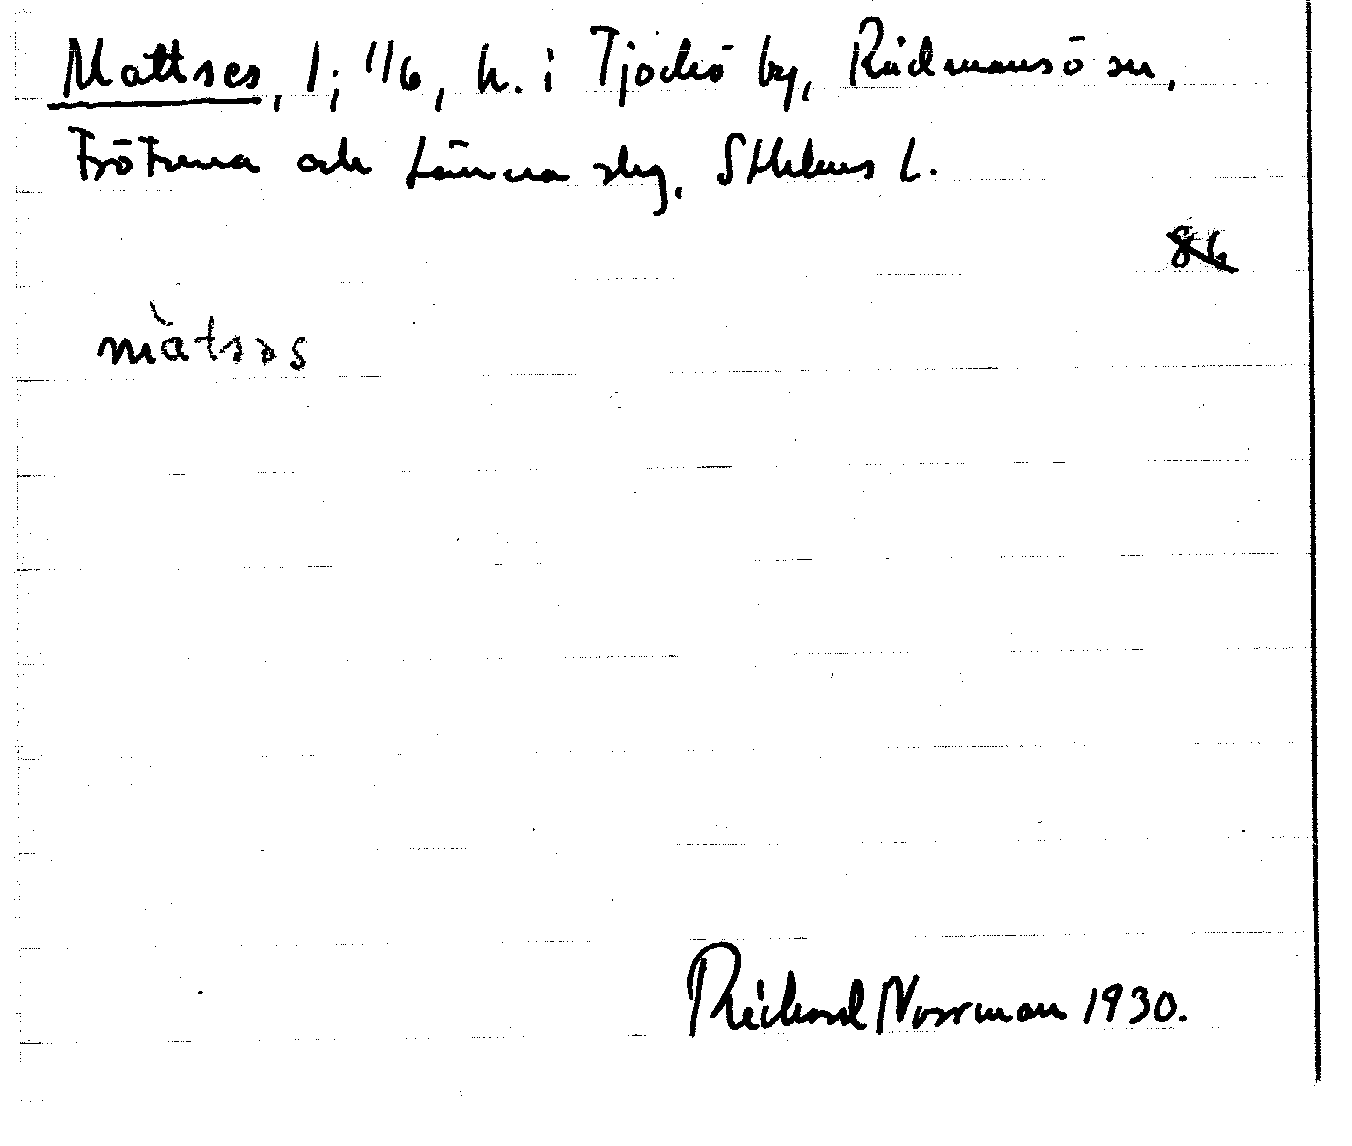 Mattses, 1; 1/6, h. i Tjockö by, Rådmansö sn,
Frötuna och Länna slg, Sthlms l.
86
màtsəs
Richard Norrman 1930.